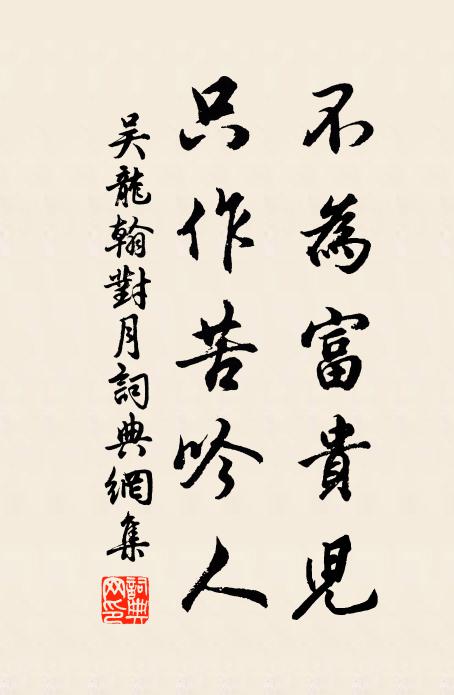 不為富貴兒
只作苦吟人
吴龍翰對月詞典網集
詞典网印